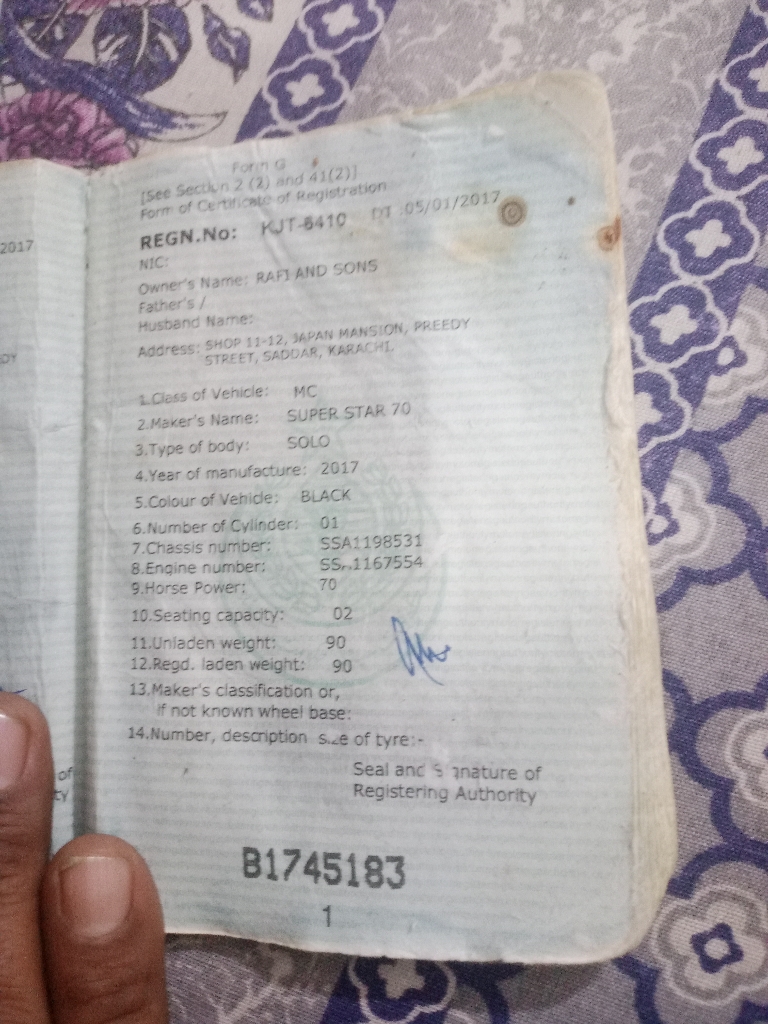 2017
Form G
[See Section 2 (2) and 41(2)]
Form of Certificate of Registration
REGN.No: KJT-6410 DT 05/01/2017
NIC:
Owner's Name: RAFI AND SONS
Father's /
Husband Name:
Address: SHOP 11-12, JAPAN MANSION, PREEDY
STREET, SADDAR, KARACHI.
DY
1.Class of Vehicle: MC
2.Maker's Name: SUPER STAR 70
3.Type of body: SOLO
4.Year of manufacture: 2017
5.Colour of Vehicle: BLACK
6.Number of Cylinder: 01
7.Chassis number: SSA1198531
8.Engine number: 1167554
9.Horse Power: 70
10.Seating capacity: 02
11.Unladen weight: 90
12.Regd. laden weight: 90
13.Maker's classification or,
if not known wheel base:
14.Number, description size of tyre:-
of
ty
Seal and Signature of
Registering Authority
B1745183
1